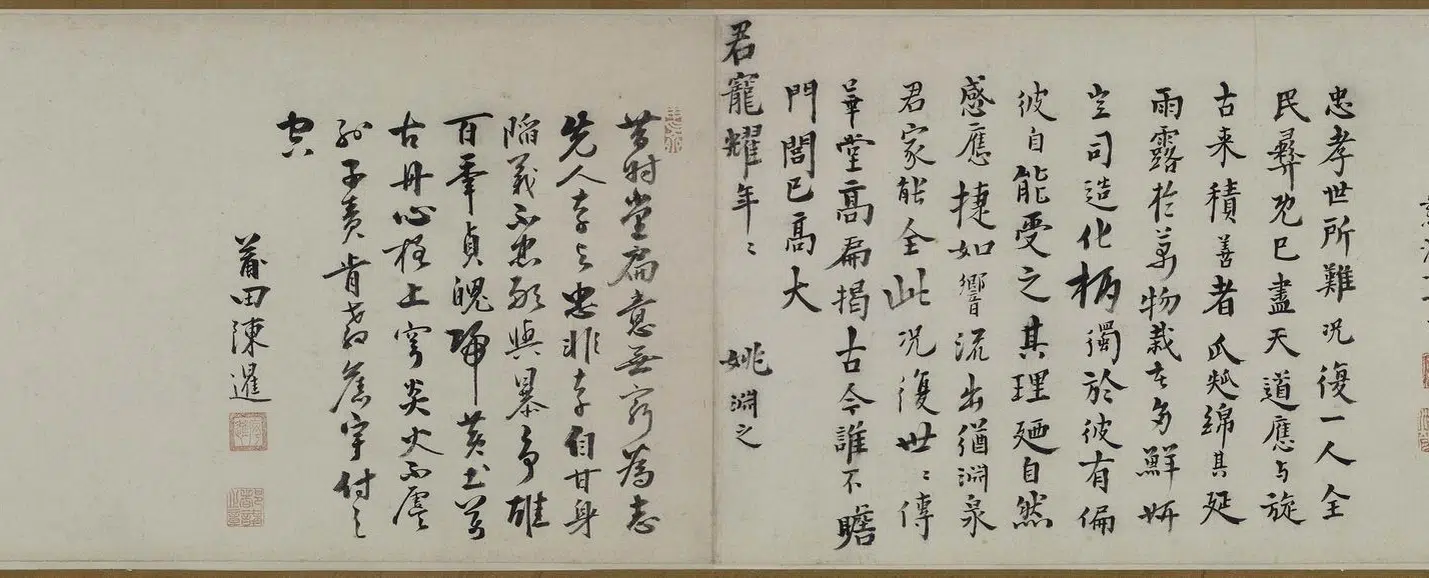 忠孝世所難況復一人全
民彝既已盡天道應与旋
古来積善者瓜瓞綿其延
雨露於萬物栽者多鮮妍
豈司造化柄獨於彼有偏
彼自能受之其理廼自然
感應捷如響流出猶淵泉
君家能全此況復世〻傳
華堂高扁揭古今誰不瞻
門閭已高大
君寵耀年〻 姚淵之
昔时堂扁意無窮為志
先人孝与忠非孝自甘身
陷義不忠孰與暴爭雄
百年貞魄歸黄土萬
古丹心極上穹炎火不
孫子責肯教舊宇付之
空
莆田陳暹